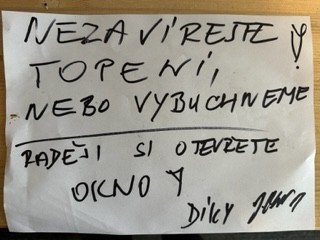 NEZAVÍREJTE !
TOPENÍ,
NEBO VYBUCHNEME
RADĚJI SI OTEVŘETE
OKNO !
DÍKY